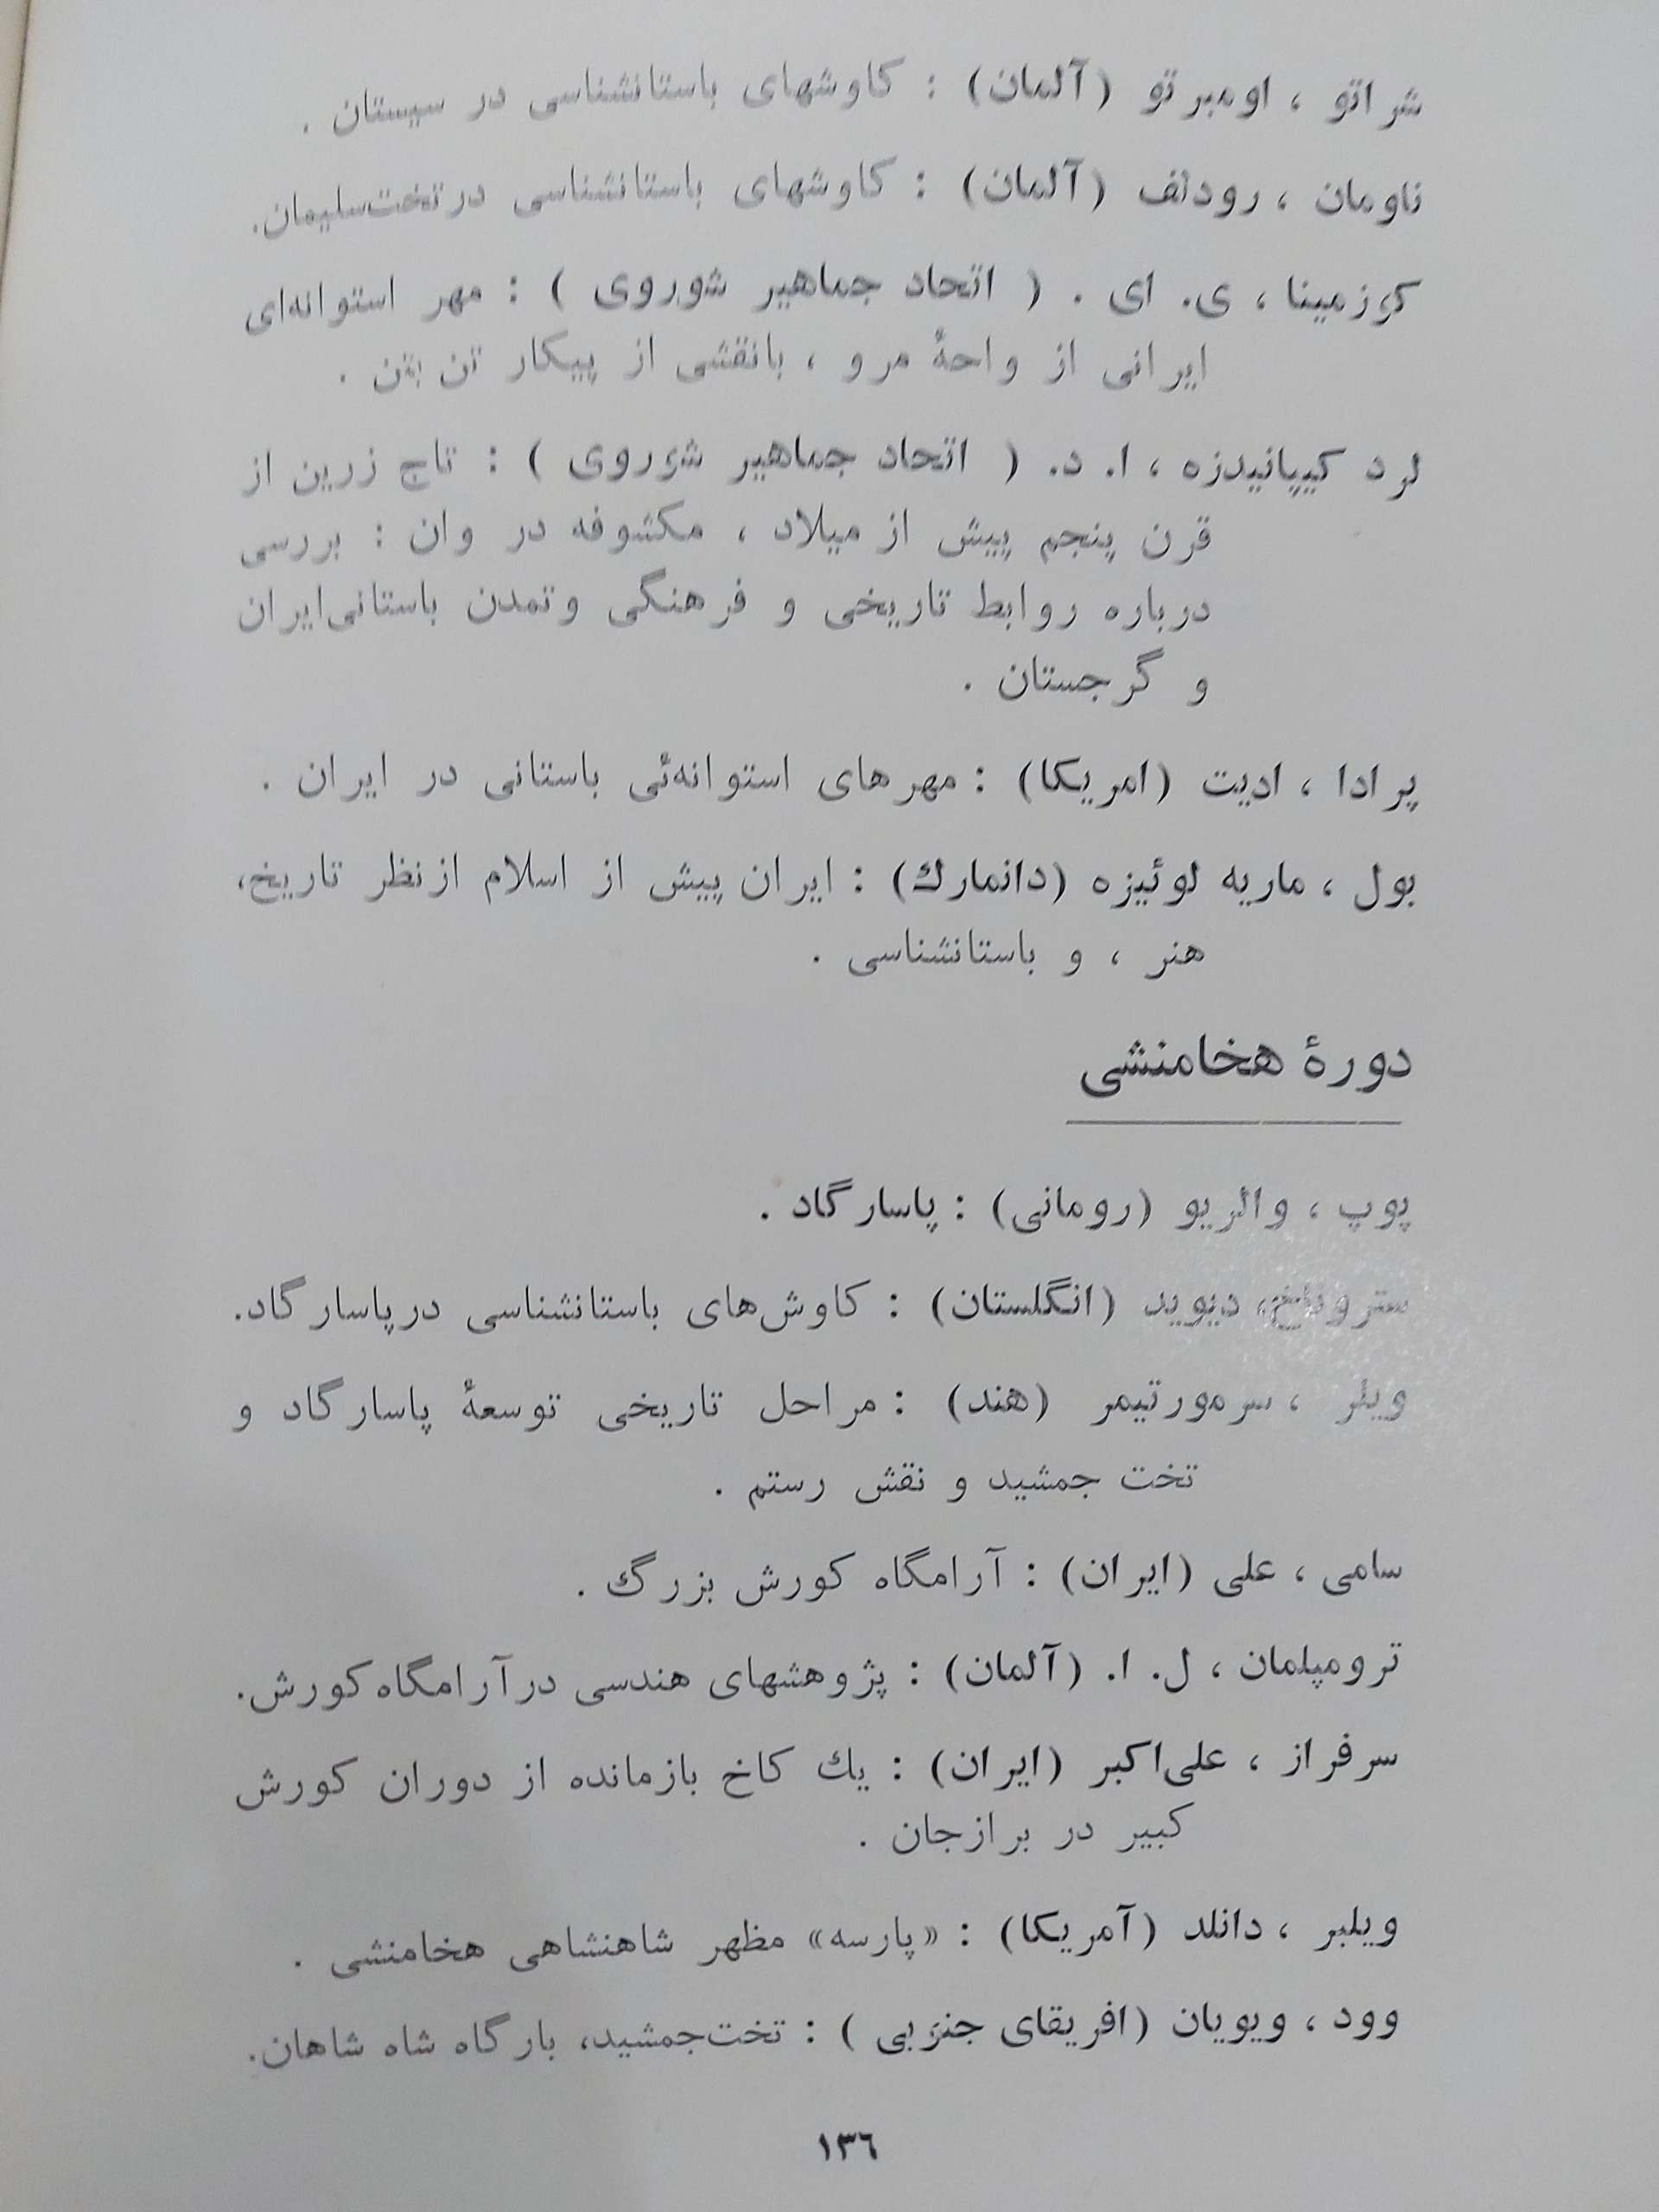 شراتو ، اومبرتو (آلمان) : کاوشهای باستانشناسی در سیستان .
ناومان ، رودلف (آلمان) : کاوشهای باستانشناسی درتخت‌سلیمان.
کوزمینا ، ی. ای . ( اتحاد جماهیر شوروی ) : مهر استوانه‌ای
ایرانی از واحهٔ مرو ، بانقشی از پیکار تن بتن .
لرد کیپانیدزه ، ا. د. ( اتحاد جماهیر شوروی ) : تاج زرین از
قرن پنجم پیش از میلاد ، مکشوفه در وان : بررسی
درباره روابط تاریخی و فرهنگی وتمدن باستانی‌ایران
و گرجستان .
پرادا ، ادیت (امریکا) : مهرهای استوانه‌ئی باستانی در ایران .
بول ، ماریه لوئیزه (دانمارك) : ایران پیش از اسلام ازنظر تاریخ،
هنر ، و باستانشناسی .
دورهٔ هخامنشی
پوپ ، والریو (رومانی) : پاسارگاد .
ستروناخ، دیوید (انگلستان) : کاوش‌های باستانشناسی درپاسارگاد.
ویلر ، سرمورتیمر (هند) : مراحل تاریخی توسعهٔ پاسارگاد و
تخت جمشید و نقش رستم .
سامی ، علی (ایران) : آرامگاه کورش بزرگ .
ترومپلمان ، ل. ا. (آلمان) : پژوهشهای هندسی درآرامگاه‌کورش.
سرفراز ، علی‌اکبر (ایران) : یك کاخ بازمانده از دوران کورش
کبیر در برازجان .
ویلبر ، دانلد (آمریکا) : «پارسه» مظهر شاهنشاهی هخامنشی .
وود ، ویویان (افریقای جنوبی ) : تخت‌جمشید، بارگاه شاه شاهان.
۱۳٦